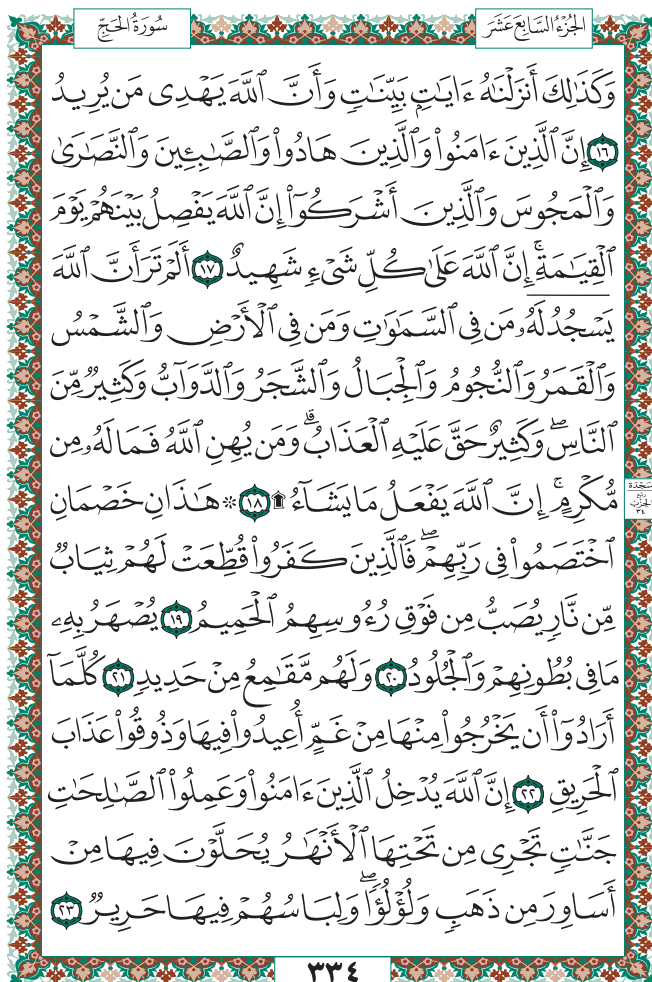 الجُزْءُ السَّابِعَ عَشَرَ
سُورَةُ الحَجّ
وَكَذَٰلِكَ أَنزَلْنَٰهُ ءَايَٰتٍۭ بَيِّنَٰتٖ وَأَنَّ ٱللَّهَ يَهْدِي مَن يُرِيدُ
١٦ إِنَّ ٱلَّذِينَ ءَامَنُواْ وَٱلَّذِينَ هَادُواْ وَٱلصَّٰبِـِٔينَ وَٱلنَّصَٰرَىٰ
وَٱلْمَجُوسَ وَٱلَّذِينَ أَشْرَكُوٓاْ إِنَّ ٱللَّهَ يَفْصِلُ بَيْنَهُمْ يَوْمَ
ٱلْقِيَٰمَةِۚ إِنَّ ٱللَّهَ عَلَىٰ كُلِّ شَيْءٖ شَهِيدٌ ١٧ أَلَمْ تَرَ أَنَّ ٱللَّهَ
يَسْجُدُ لَهُۥ مَن فِي ٱلسَّمَٰوَٰتِ وَمَن فِي ٱلْأَرْضِ وَٱلشَّمْسُ
وَٱلْقَمَرُ وَٱلنُّجُومُ وَٱلْجِبَالُ وَٱلشَّجَرُ وَٱلدَّوَآبُّ وَكَثِيرٞ مِّنَ
ٱلنَّاسِۖ وَكَثِيرٌ حَقَّ عَلَيْهِ ٱلْعَذَابُۗ وَمَن يُهِنِ ٱللَّهُ فَمَا لَهُۥ مِن
مُّكْرِمٍۚ إِنَّ ٱللَّهَ يَفْعَلُ مَا يَشَآءُ ۩ ١٨ ۞ هَٰذَانِ خَصْمَانِ
سَجْدَة
رُبع
الحِزب
٣٤
ٱخْتَصَمُواْ فِي رَبِّهِمْۖ فَٱلَّذِينَ كَفَرُواْ قُطِّعَتْ لَهُمْ ثِيَابٞ
مِّن نَّارٖ يُصَبُّ مِن فَوْقِ رُءُوسِهِمُ ٱلْحَمِيمُ ١٩ يُصْهَرُ بِهِۦ
مَا فِي بُطُونِهِمْ وَٱلْجُلُودُ ٢٠ وَلَهُم مَّقَٰمِعُ مِنْ حَدِيدٖ ٢١ كُلَّمَآ
أَرَادُوٓاْ أَن يَخْرُجُواْ مِنْهَا مِنْ غَمٍّ أُعِيدُواْ فِيهَا وَذُوقُواْ عَذَابَ
ٱلْحَرِيقِ ٢٢ إِنَّ ٱللَّهَ يُدْخِلُ ٱلَّذِينَ ءَامَنُواْ وَعَمِلُواْ ٱلصَّٰلِحَٰتِ
جَنَّٰتٖ تَجْرِي مِن تَحْتِهَا ٱلْأَنْهَٰرُ يُحَلَّوْنَ فِيهَا مِنْ
أَسَاوِرَ مِن ذَهَبٖ وَلُؤْلُؤٗاۖ وَلِبَاسُهُمْ فِيهَا حَرِيرٞ ٢٣
٣٣٤